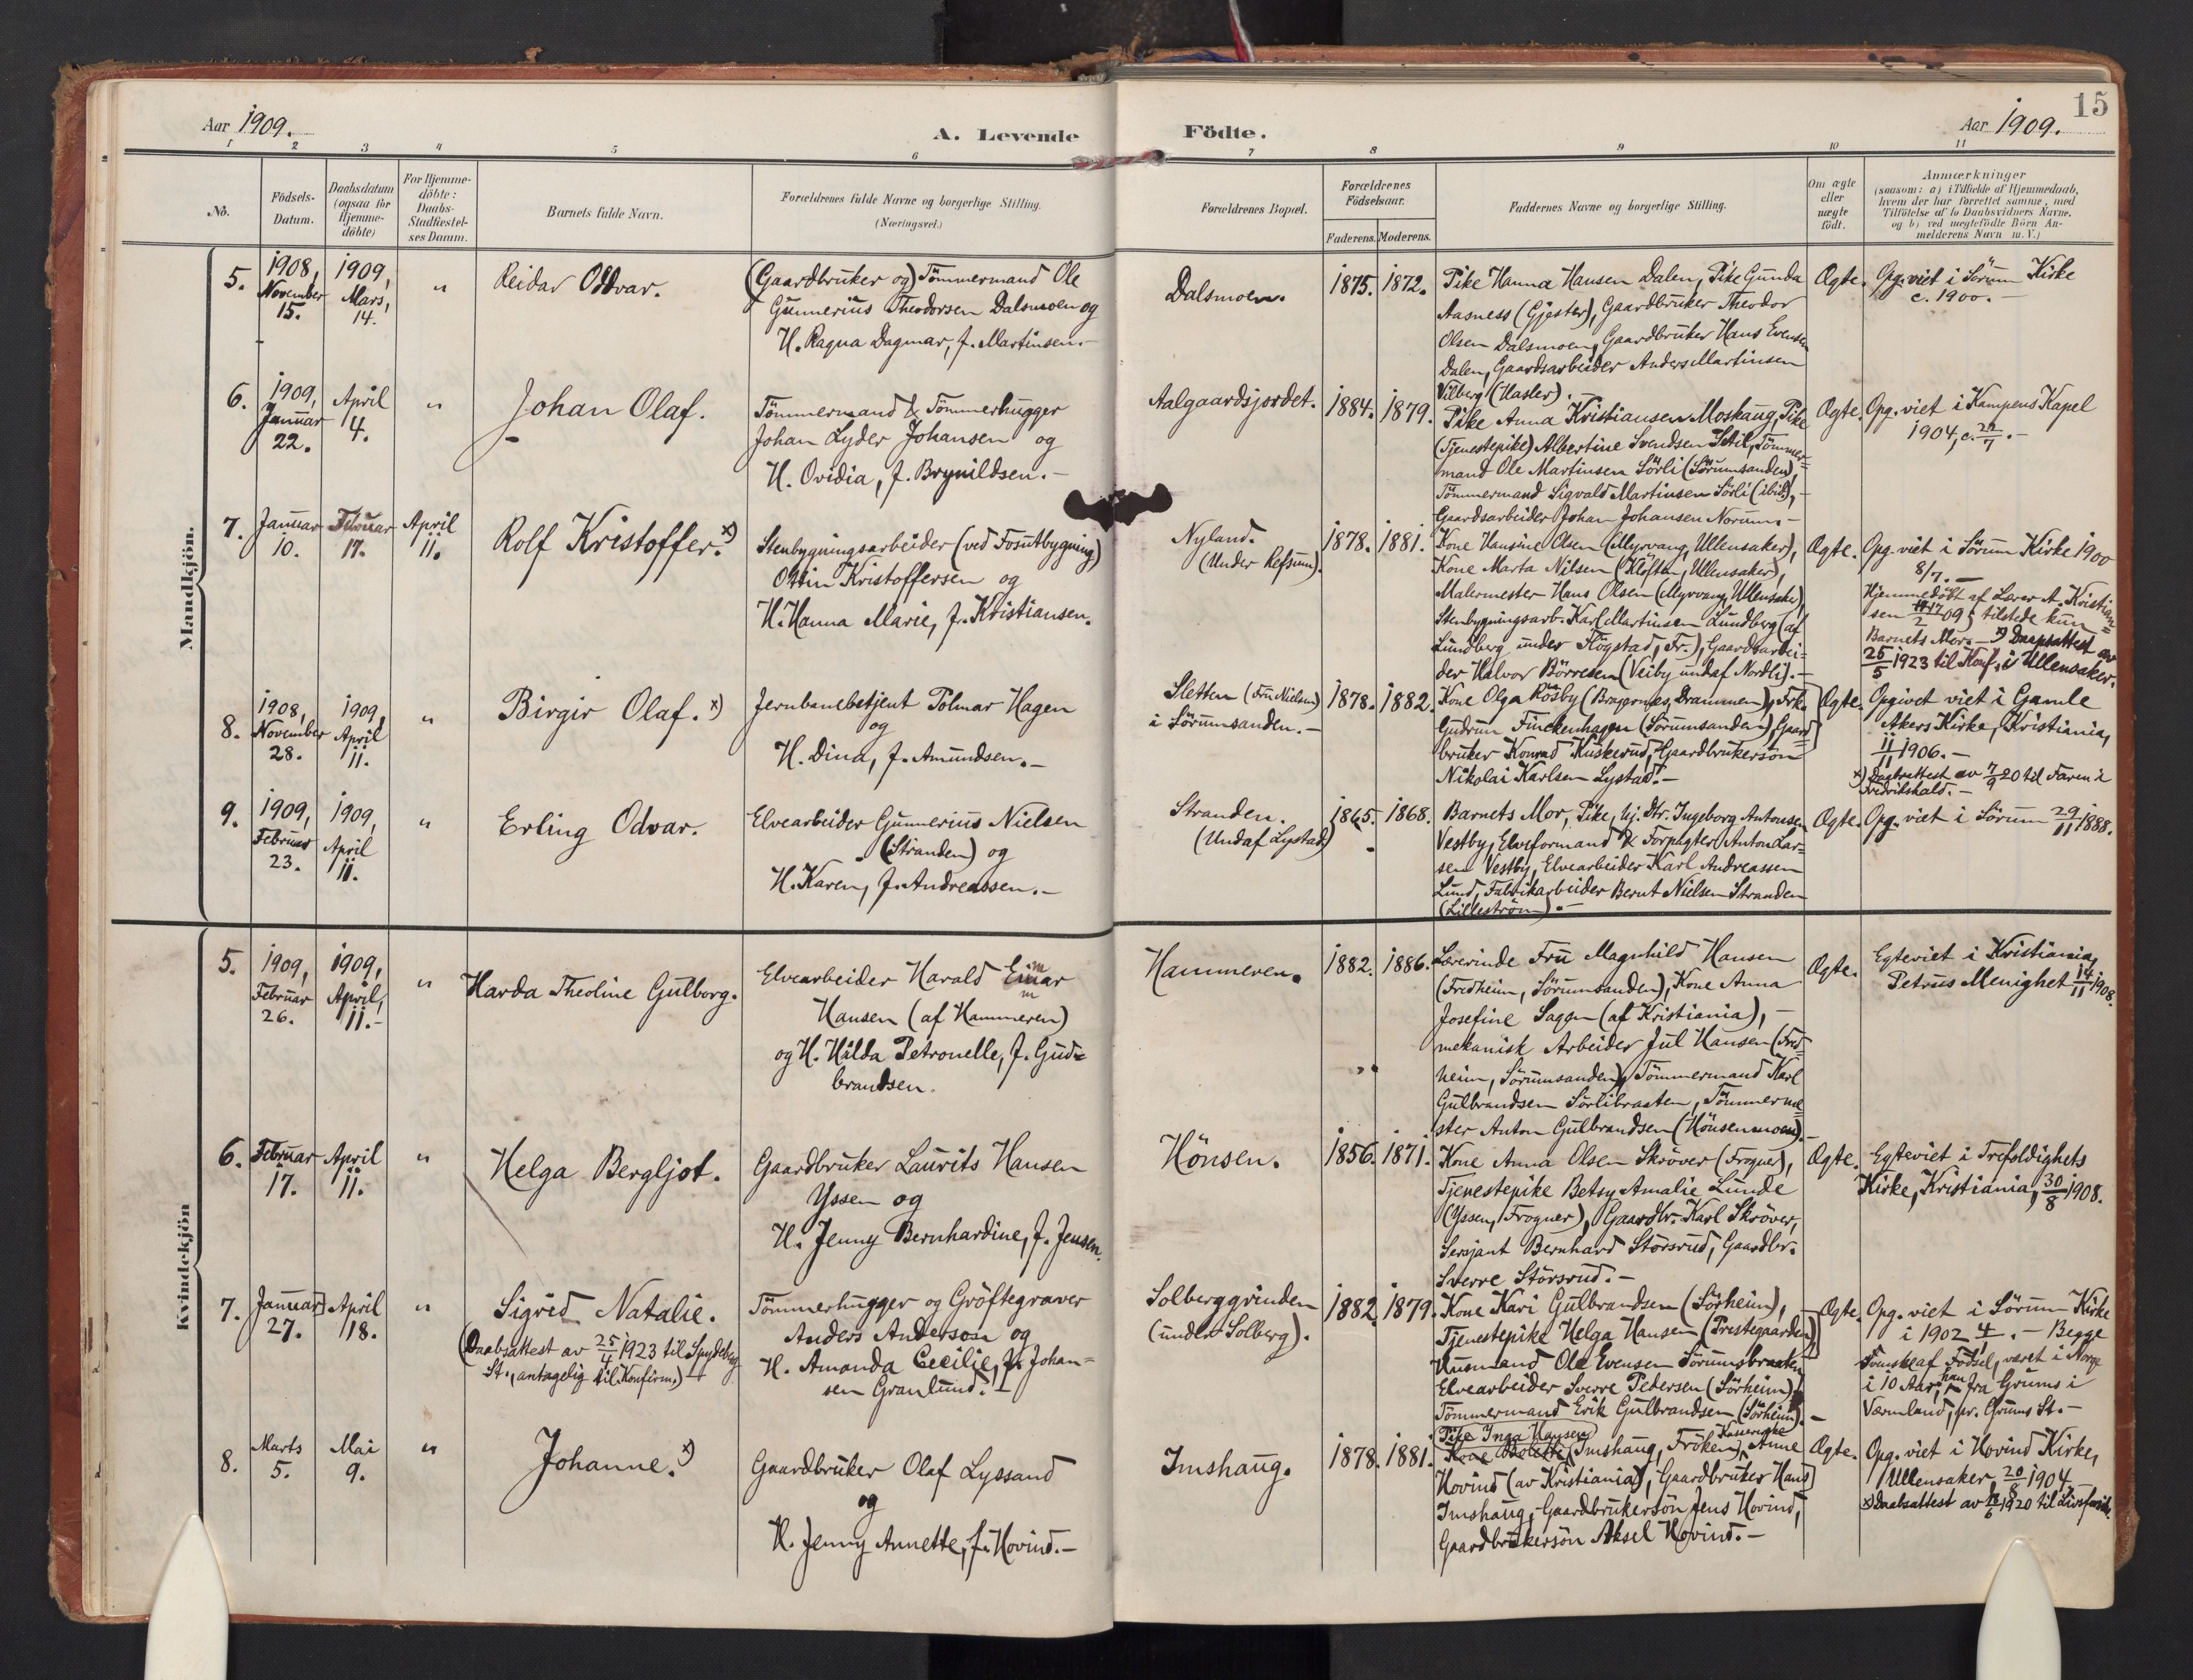 15
Aar 1909.
A. Levende Födte.
Aar 1909.
1 2 3 4 5 6 7 8 9 10 11
No.
Födsels-
Datum.
Daabsdatum
(ogsaa for
Hjemme-
döbte)
For Hjemme-
döbte:
Daabs-
Stadfæstel-
ses Datum.
Barnets fulde Navn.
Forældrenes fulde Navne og borgerlige Stilling.
(Næringsvei.)
Forældrenes Bopæl.
Forældrenes
Födselsaar.
Faderens. Moderens.
Faddernes Navne og borgerlige Stilling.
Om ægte
eller
uægte
födt.
Anmærkninger
(saasom: a) i Tilfælde af Hjemmedaab,
hvem der har forrettet samme, med
Tilföielse af to Daabsvidners Navne,
og b) ved uægtefödte Börn An-
melderens Navn m. V.)
Mandkjön.
5.
1908,
November
15.
1909,
Mars,
14.
"
Reidar Oddvar.
(Gaardbruker og) Tömmermand Ole
Gunnerius Theodorsen Dalsmoen og
H. Ragna Dagmar, f. Martinsen.-
Dalsmoen.
1875. 1872.
Pike Hanna Hansen Dalen, Pike Gunda
Aasness (Gjester), Gaardbruker Theodor
Olsen Dalsmoen, Gaardbruker Hans Evensen
Dalen, Gaardsarbeider Anders Martinsen
Vilberg (Hasler).
Ægte.
Opg. viet i Sörum Kirke
c. 1900.-
6.
1909,
Januar
22.
April
4.
"
Johan Olaf.
Tömmermand & Tömmerhugger
Johan Lyder Johansen og
H. Ovidia, f. Brynildsen.-
Aalgaardsjordet.
1884. 1879.
Pike Anna Kristiansen Moskaug, Pike
(Tjenestepike) Albertine Svendsen Stil, Tömmer=
mand Ole Martinsen Sörli (Sörumsanden),
Tömmermand Sigvald Martinsen Sörli (ibid),
Gaardsarbeider Johan Johansen Norum.-
Ægte.
Opg. viet i Kampens Kapel
1904, c.
7.
Januar
10.
Februar
17.
April
11.
Rolf Kristoffer. x)
Stenbygningsarbeider (ved Fosutbygning)
Ottin Kristoffersen og
H. Hanna Marie, f. Kristiansen.
Nyland.
(Under Refsum).
1878. 1881.
Kone Hansine Olsen (Myrvang, Ullensaker),
Kone Marta Nilsen (Klöften, Ullensaker),
Malermester Hans Olsen (Myrvang, Ullensaker),
Stenbygningsarb. Karl Martinsen Lundberg (af
Lundberg under Flögstad, Fr.), Gaardsarbei-
der Halvor Börresen (Veiby undaf Nordli).-
Ægte.
Opg. viet i Sörum Kirke 1900
8/7.-
Hjemmedöbt af Lærer A. Kristian=
sen 17/2 09; tilstede kun
Barnets Mor.- x) Daapsattest av
25/5 1923 til Konf. i Ullensaker.
8.
1908,
November
28.
1909,
April
11.
"
Birgir Olaf. x)
Jernbanebetjent Tolmar Hagen
og
H. Dina, f. Amundsen.-
Sletten (Fru Nielsen)
i Sörumsanden.-
1878. 1882.
Kone Olga Rösby (Bragernes, Drammen), Frk.
Gudrun Finckenhagen (Sörumsanden), Gaard=
bruker Konrad Kuskerud, Gaardbrukersön
Nikolai Karlsen Lystad.-
Ægte.
Opgivet viet i Gamle
Akers Kirke, Kristiania,
11/11 1906.-
x) Daabsattest av 7/9 20 til Faren i
Fredrikshald.-
9.
1909,
Februar
23.
1909,
April
11.
"
Erling Odvar.
Elvearbeider Gunnerius Nielsen
(Stranden) og
H. Karen, f. Andreassen.-
Stranden.
(Undaf Lystad)
1865. 1868.
Barnets Mor, Pike, Uj. Dtr. Ingeborg Antonsen
Vestby, Elveformand & Forpagter Anton Lar=
sen Vestby, Elvearbeider Karl Andreassen
Lund, Fabrikarbeider Bernt Nielsen Stranden
(Lilleström).-
Ægte.
Opg. viet i Sörum 29/11 1888.
Kvindekjön
5.
1909,
Februar
26.
1909,
April,
11.-
"
Harda Theoline Gulborg.
Elvearbeider Harald Einar
Hansen (af Hammeren)
og H. Hilda Petronelle, f. Gud=
brandsen.
Hammeren.
1882. 1886.
Lærerinde Fru Magnhild Hansen
(Fredheim, Sörumsanden), Kone Anna
Josefine Saggen (af Kristiania),-
mekanisk Arbeider Jul Hansen (Fred=
heim, Sörumsanden), Tömmermand Karl
Gulbrandsen Sörlibraaten, Tömmerme=
ster Anton Gulbrandsen (Hönsenmoen).-
Ægte.
Egteviet i Kristiania,
Petrus Menighet 14/11 1908.
6.
Februar
17.
April
11.
"
Helga Bergljot.
Gaardbruker Laurits Hansen
Yssen og
H. Jenny Bernhardine, f. Jensen.
Hönsen.
1856. 1871.
Kone Anna Olsen Skröver (Frogner),
Tjenestepike Betsy Amalie Lunde
(Yssen, Frogner), Gaardbr. Karl Skröver,
Sersjant Bernhard Störsrud, Gaardbr.
Sverre Störsrud.-
Ægte.
Egteviet i Trefoldighets
Kirke, Kristiania, 30/8 1908.
7.
Januar
27.
April
18.
"
Sigrid Natalie.
(Daabsattest av 25/4 1923 til Spydeberg
St., antagelig til Konfirm.)
Tömmerhugger og Gröftegraver
Anders Anderson og
H. Amanda Cecilie, f. Johan=
sen Granlund.-
Solberggrinden
(under Solberg).
1882. 1879.
Kone Kari Gulbrandsen (Sörheim),
Tjenestepike Helga Hansen (Prestegaarden),
Husmand Ole Evensen Sörumsbraaten,
Elvearbeider Sverre Pedersen (Sörheim),
Tömmermand Erik Gulbrandsen (Sörheim).-
Ægte.
Opg. viet i Sörum Kirke
i 1902 .- Begge
Svenske af Födsel, været i Norge
i 10 Aar, han fra Grums i
Værmland, pr. Grums St.-
8.
Marts
5.
Mai
9.
"
Johanne. x)
Gaardbruker Olaf Lyssand
og
H. Jenny Annette, f. Hovind.-
Imshaug.
1878. 1881.
Pike Inga Hansen
Kone Imshaug, Fröken Anne
Hovind (av Kristiania), Gaardbruker Hans
Imshaug, Gaardbrukersön Jens Hovind,
Gaardbrukersön Aksel Hovind.-
Ægte.
Opg. viet i Hovind Kirke,
Ullensaker, 20/8 1904.-
x) Daabsattest av 1920 til